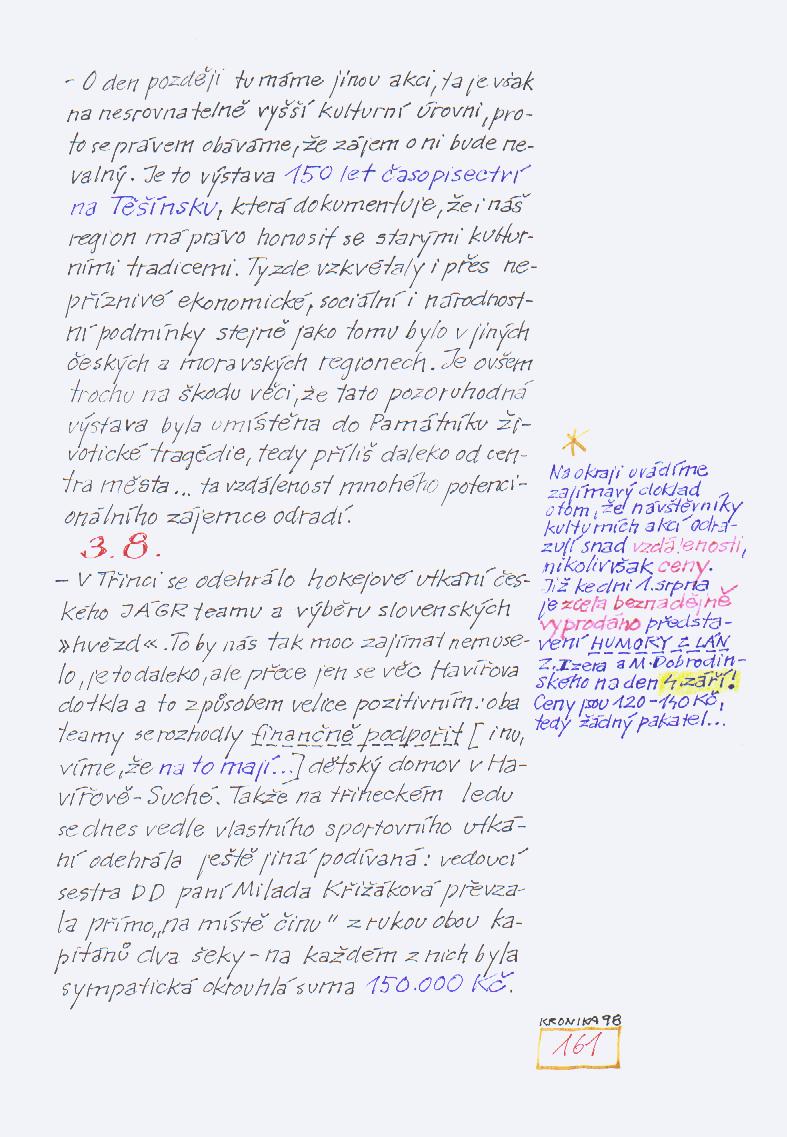 - O den později tu máme jinou akci, ta je však
na nesrovnatelně vyšší kulturní úrovni, pro-
to se právem obáváme, že zájem o ni bude ne-
valný. Je to výstava 150 let časopisectví
na Těšínsku, která dokumentuje, že i náš
region má právo honosit se starými kultur-
ními tradicemi. Ty zde vzkvétaly i přes ne-
příznivé ekonomické, sociální i národnost-
ní podmínky stejně jako tomu bylo v jiných
českých a moravských regionech. Je ovšem
trochu na škodu věci, že tato pozoruhodná
výstava byla umístěna do Památníku ži-
votické tragédie, tedy příliš daleko od cen-
tra města... ta vzdálenost mnohého potenci-
onálního zájemce odradí.
3.8.
- V Třinci se odehrálo hokejové utkání čes-
kého JÁGR teamu a výběru slovenských
»hvězd«. To by nás tak moc zajímat nemuse-
lo, je to daleko, ale přece jen se věc Havířova
dotkla a to způsobem velice pozitivním: oba
teamy se rozhodly finančně podpořit [inu,
víme, že na to mají...] dětský domov v Ha-
vířově-Suché. Takže na třineckém ledu
se dnes vedle vlastního sportovního utká-
ní odehrála ještě jiná podívaná: vedoucí
sestra DD paní Milada Křižáková převza-
la přímo „na místě činu" z rukou obou ka-
pitánů dva šeky - na každém z nich byla
sympatická okrouhlá suma 150.000 Kč.
*
Na okraji uvádíme
zajímavý doklad
o tom, že návštěvníky
kulturních akcí odra-
zují snad vzdálenosti,
nikoliv však ceny.
Již ke dni 1. srpna
je zcela beznadějně
vyprodáno představ-
vení HUMORY Z LÁN
Z. Izera a M. Dobrodin-
ského na den 4 září!
Ceny jsou 120-140 Kč,
tedy žádný pakatel...
KRONIKA 98
161